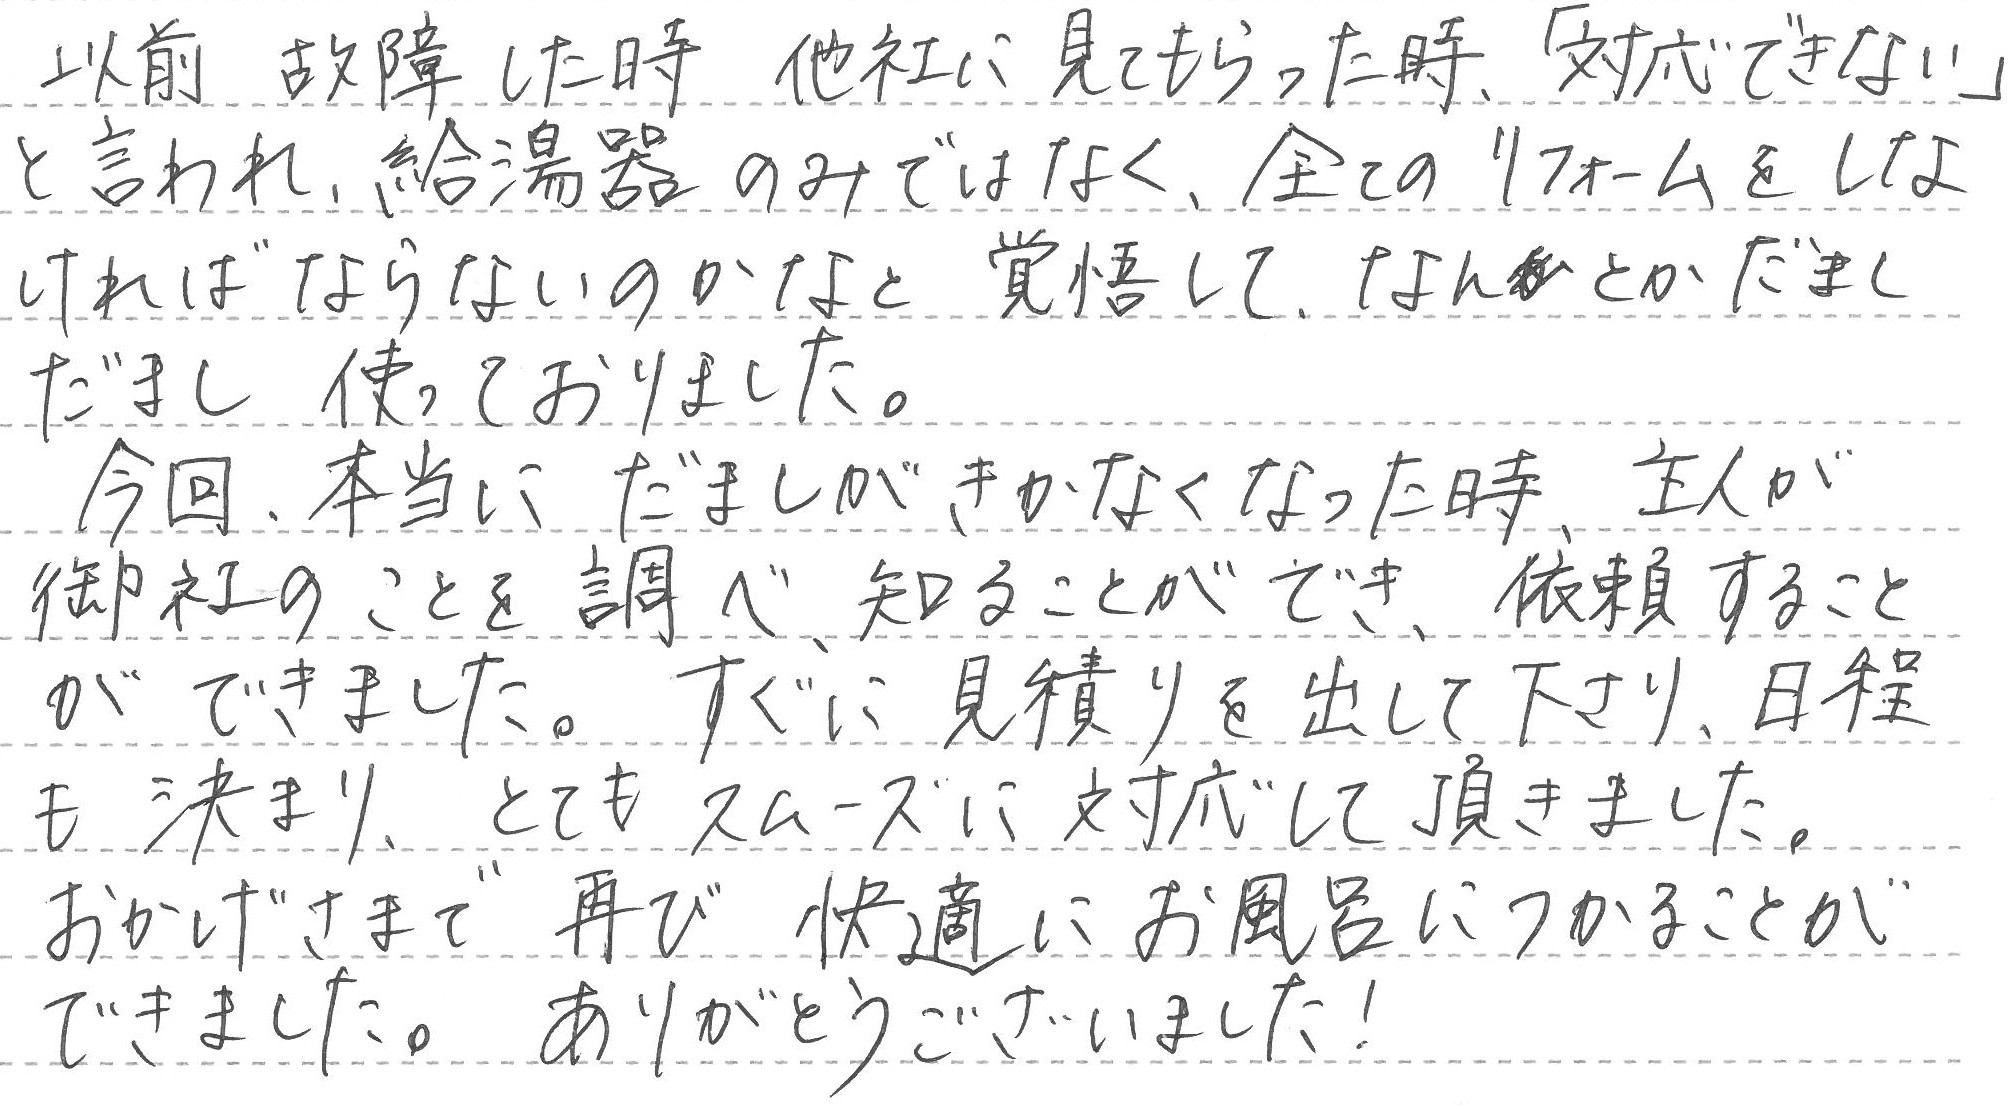 以前 故障した時 他社に見てもらった時、「対応できない」
と言われ、給湯器のみではなく、全てのリフォームをしな
ければならないのかなと 覚悟して、なんとかだまし
だまし 使っておりました。
今回、本当に だましがきかなくなった時、主人が
御社のことを調べ、知ることができ、依頼すること
ができました。 すぐに見積りを出して下さり、日程
も決まり、とてもスムーズに対応して頂きました。
おかげさまで 再び 快適にお風呂につかることが
できました。 ありがとうございました!